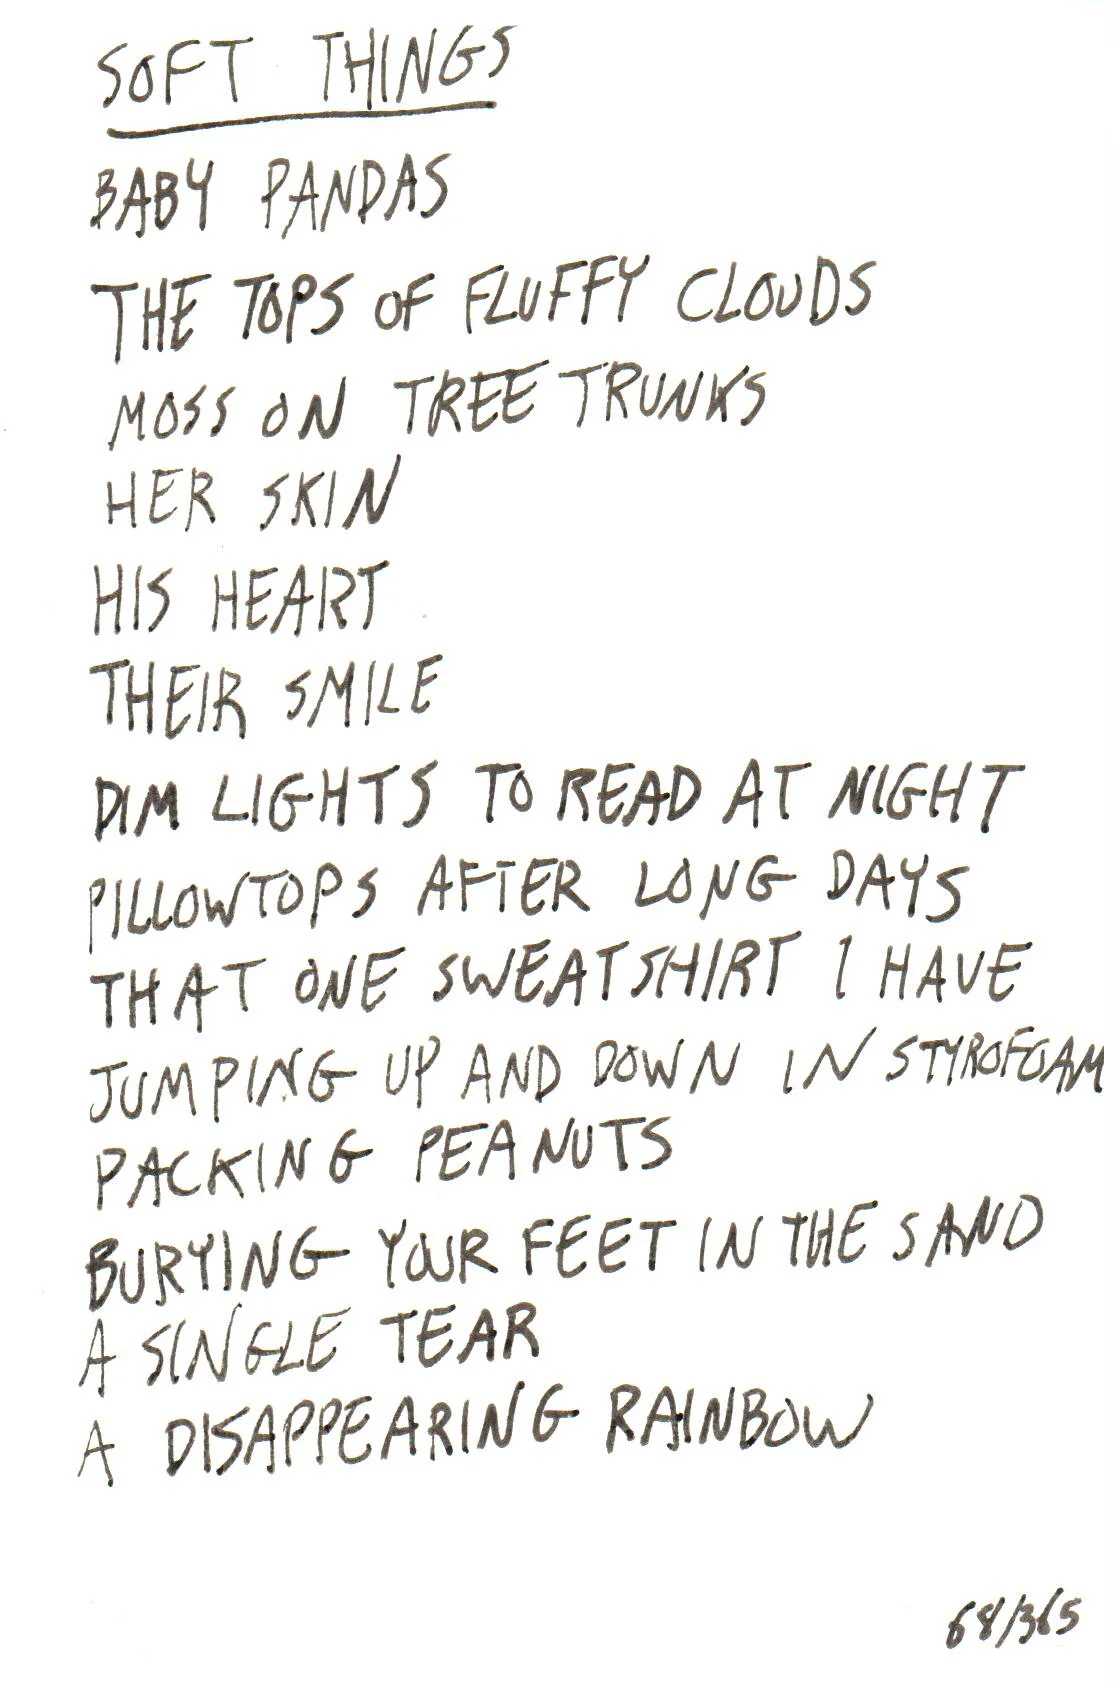 SOFT THINGS
BABY PANDAS
THE TOPS OF FLUFFY CLOUDS
MOSS ON TREE TRUNKS
HER SKIN
HIS HEART
THEIR SMILE
DIM LIGHTS TO READ AT NIGHT
PILLOWTOPS AFTER LONG DAYS
THAT ONE SWEATSHIRT I HAVE
JUMPING UP AND DOWN IN STYROFOAM
PACKING PEANUTS
BURYING YOUR FEET IN THE SAND
A SINGLE TEAR
A DISAPPEARING RAINBOW
68/365